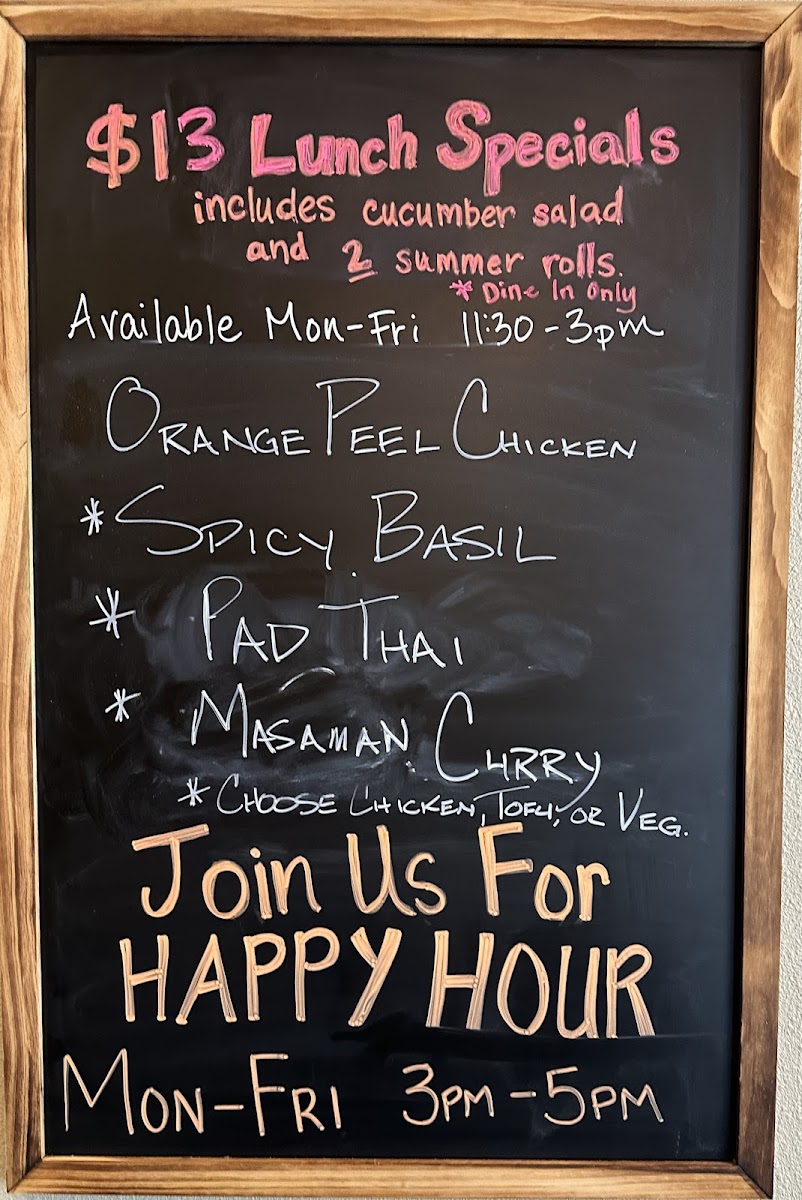 $13 Lunch Specials
includes cucumber salad
and 2 summer rolls.
* Dine In Only
Available Mon-Fri 11:30-3pm
ORANGE PEEL CHICKEN
*SPICY BASIL
* PAD THAI
* MASAMAN CURRY
* CHOOSE CHICKEN, TOFU, OR VEG.
Join Us For
HAPPY HOUR
MON-FRI 3PM-5PM